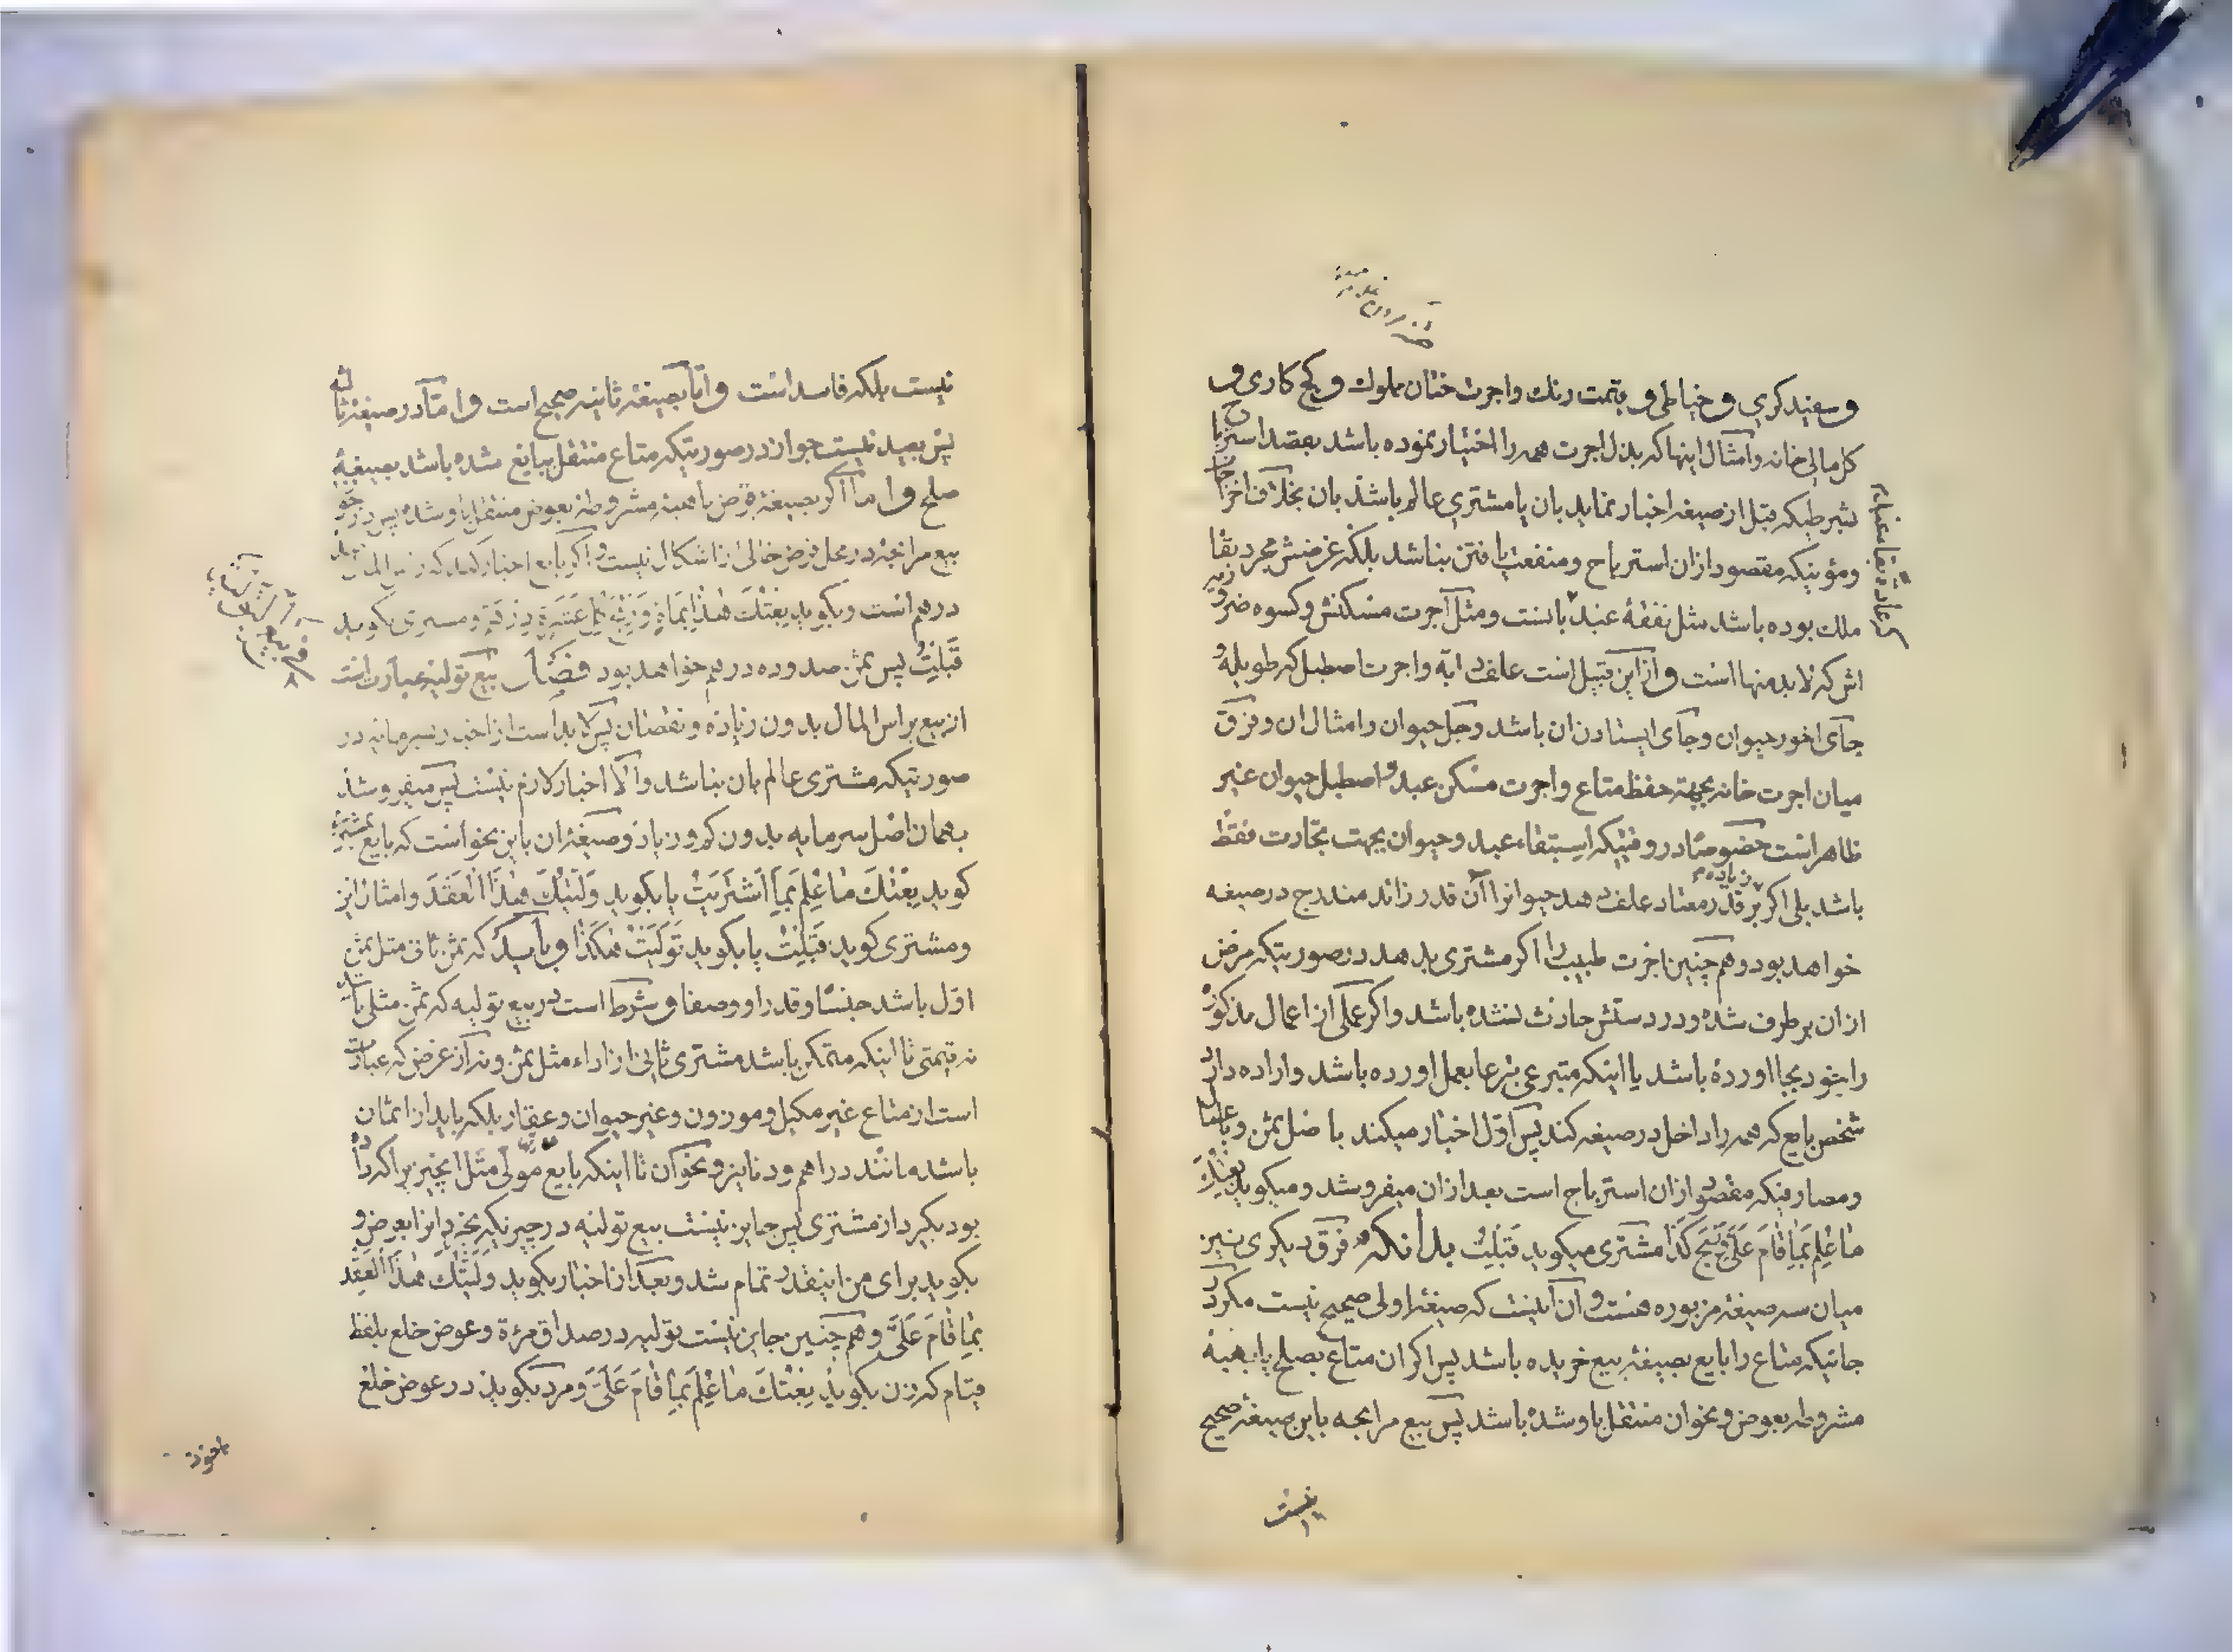 و سفیدکری و خیاطی و قیمت رنك و اجرت ختان مملوك و کج کاری و
کل مالی خانه و امثال اینها که بذل اجرت همه را اختیار نموده باشد بقصد استرباح
بشرطیکه قبل از صیغه اخبار نماید بان یا مشتری عالم باشد بان بخلاف اخراجات
و مؤنیکه مقصود ازان استرباح و منفعت یافتن نباشد بلکه غرضش مجرد بقا
ملك بوده باشد مثل نفقهٔ عبد بانست و مثل اجرت مسکنش و کسوه ضروریه
اش که لابد منها است و ازاین قبیل است علف دابه و اجرت اصطبل که طویله و
جای اخور حیوان و جای ایستادن ان باشد و جل حیوان و امثال ان و فرق
میان اجرت خانه بجهة حفظ متاع و اجرت مسکن عبد و اصطبل حیوان غیر
ظاهر است خصوصًا در وقتیکه استبقاء عبد و حیوان بجهت تجارت فقط
باشد بلی اکر زیاده بر قدر معتاد علف دهد حیوانرا آن قدر زاند مندرج در صیغه
خواهد بود و هم چنین اجرت طبیب را اکر مشتری بدهد در صورتیکه مرض
ازان برطرف شده و در دستش حادث نشده باشد و اکر عملی از اعمال مذکوره
را بخود بجا اورده باشد یا اینکه متبرعی تبرعا بعمل اورده باشد و اراده دارد
شخص بایع که همه را داخل در صیغه کند پس اوّل اخبار میکند باصل ثمن و باعمال
و مصارفیکه مقصود ازان استرباح است بعد ازان میفروشد و میکوید بعتك
مٰا عُلِمَ بِمٰا قٰامَ عَلَیَّ وَ رِبْحِ کَذٰا مشتری میکوید قَبِلْتُ بدانکه فرق دیکری نیز
میان سه صیغهٔ مزبوره هست و ان اینست که صیغهٔ اولی صحیح نیست مکر در
جائیکه متاع را بایع بصیغهٔ بیع خریده باشد پس اکر ان متاع بصلح یا بهبهٔ
مشروطه بعوض و نحو ان منتقل باو شده باشد پس بیع مرابحه باین صیغه صحیح
نیست
نیست بلکه فاسد است و امّا بصیغهٔ ثانیه صحیح است و امّا در صیغهٔ ثالثه
پس بعید نیست جواز در صورتیکه متاع منتقل ببایع شده باشد بصیغهٔ
صلح و امّا اکر بصیغهٔ قرض یا هبهٔ مشروطه بعوض منتقل باو شده پس در جواز
بیع مرابحه در محل فرض خالی از اشکال نیست و اکر بایع اخبار کند که راس المال
درهم است و بکوید بِعْتُكَ هٰذٰا بِمٰاةٍ وَ رِبْحِ کُلِّ عَشَرَةٍ و مشتری بکوید
قَبِلْتُ پس ثمن صد و ده درهم خواهد بود فصل بیع تولیه عبارت است
از بیع براس المال بدون زیاده و نقصان پس لابد است از اخبار بسرمایه در
صورتیکه مشتری عالم بان نباشد و الّا اخبار لازم نیست پس میفروشد
بهمان اصل سرمایه بدون کم و زیاد و صیغهٔ ان باین نحو است که بایع بمشتری
کوید بِعْتُكَ مٰا عُلِمَ بِمٰا اشْتَرَیْتُ یا بکوید وَلَّیْتُكَ هٰذَا الْعَقْدَ و امثال این
و مشتری کوید قَبِلْتُ یا بکوید تَوَلَّیْتُ هٰکَذٰا و باید که ثمن ثانی مثل ثمن
اوّل باشد جنسًا و قدرا و وصفا و شرط است در بیع تولیه که ثمن مثلی باشد
نه قیمتی تا اینکه متمکن باشد مشتری ثانی از اداء مثل ثمن و نه از عرض که عبارت
است از متاع غیر مکیل و موزون و غیر حیوان و عقار بلکه باید از اثمان
باشد مانند دراهم و دنانیر و نحو ان تا اینکه بایع مولی مثل انچیزیرا که داده
بود بکیرد از مشتری پس جایز نیست بیع تولیه در چیزیکه بخرد انرا بعرض و
بکوید برای من اینقدر تمام شد و بعد از اخبار بکوید وَلَّیْتُكَ هٰذَا الْعَقْد
بِمٰا قٰامَ عَلَیَّ و هم چنین جایز نیست تولیه در صداق مرئة و عوض خلع بلفظ
قیام که زن بکوید بِعْتُكَ مٰا عُلِمَ بِمٰا قٰامَ عَلَیَّ و مرد بکوید در عوض خلع